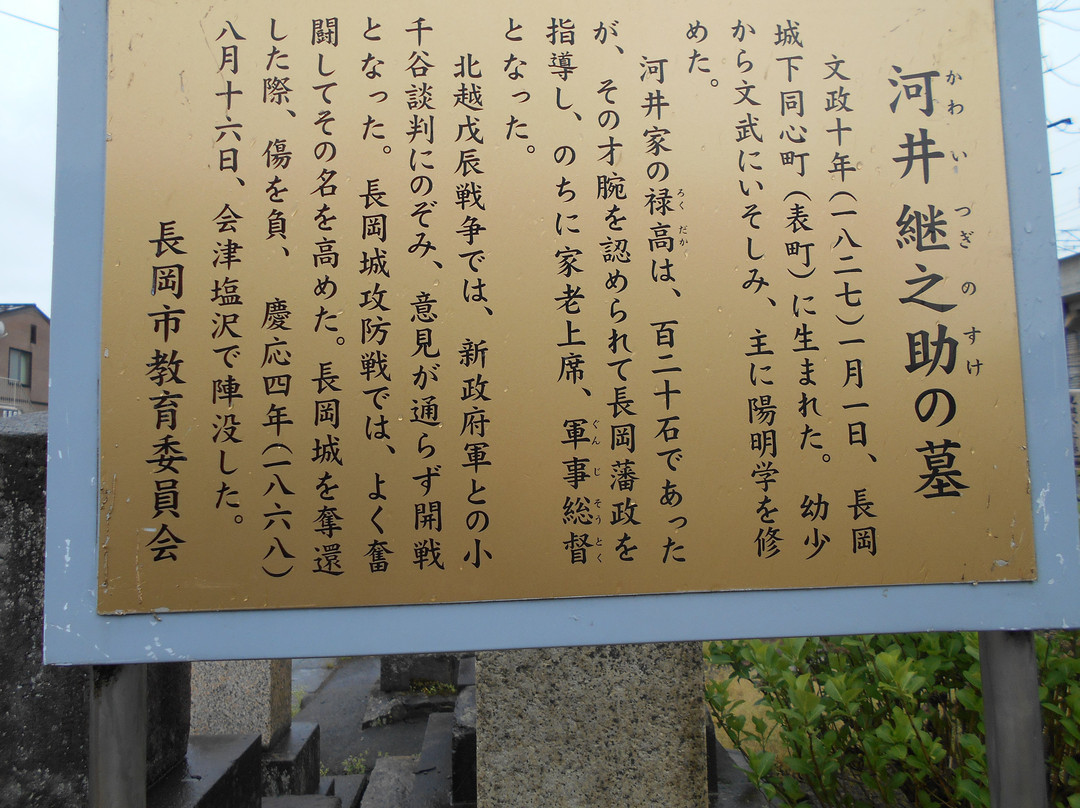 河井継之助の墓
かわいつぎのすけ
文政十年(一八二七)一月一日、長岡
城下同心町(表町)に生まれた。幼少
から文武にいそしみ、主に陽明学を修
めた。
河井家の禄高は、百二十石であった
ろくだか
が、その才腕を認められて長岡藩政を
指導し、のちに家老上席、軍事総督
ぐんじそうとく
となった。
北越戊辰戦争では、新政府軍との小
千谷談判にのぞみ、意見が通らず開戦
となった。長岡城攻防戦では、よく奮
闘してその名を高めた。長岡城を奪還
した際、傷を負、慶応四年(一八六八)
八月十六日、会津塩沢で陣没した。
長岡市教育委員会